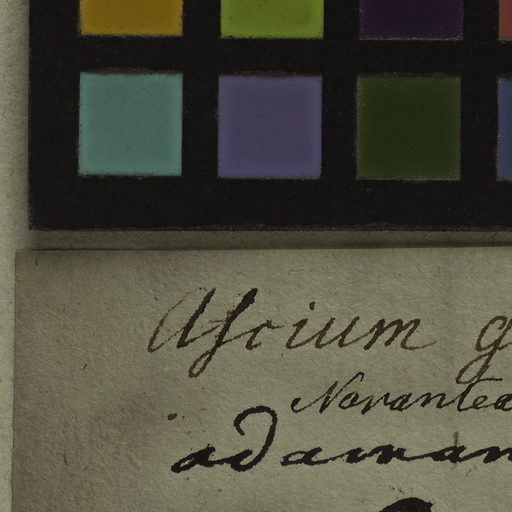 Ascium g
Norantea
adaman